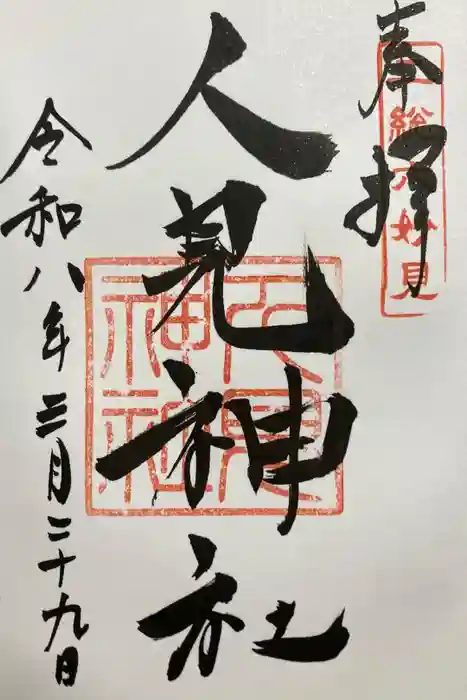 奉拝
総社妙見
人見神社
人見神社
令和八年三月二十九日